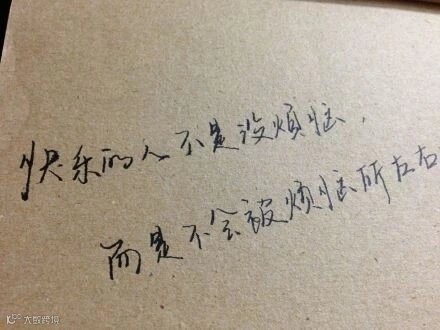 快乐的人不是没烦恼，
而是不会被烦恼所左右
大数跨境